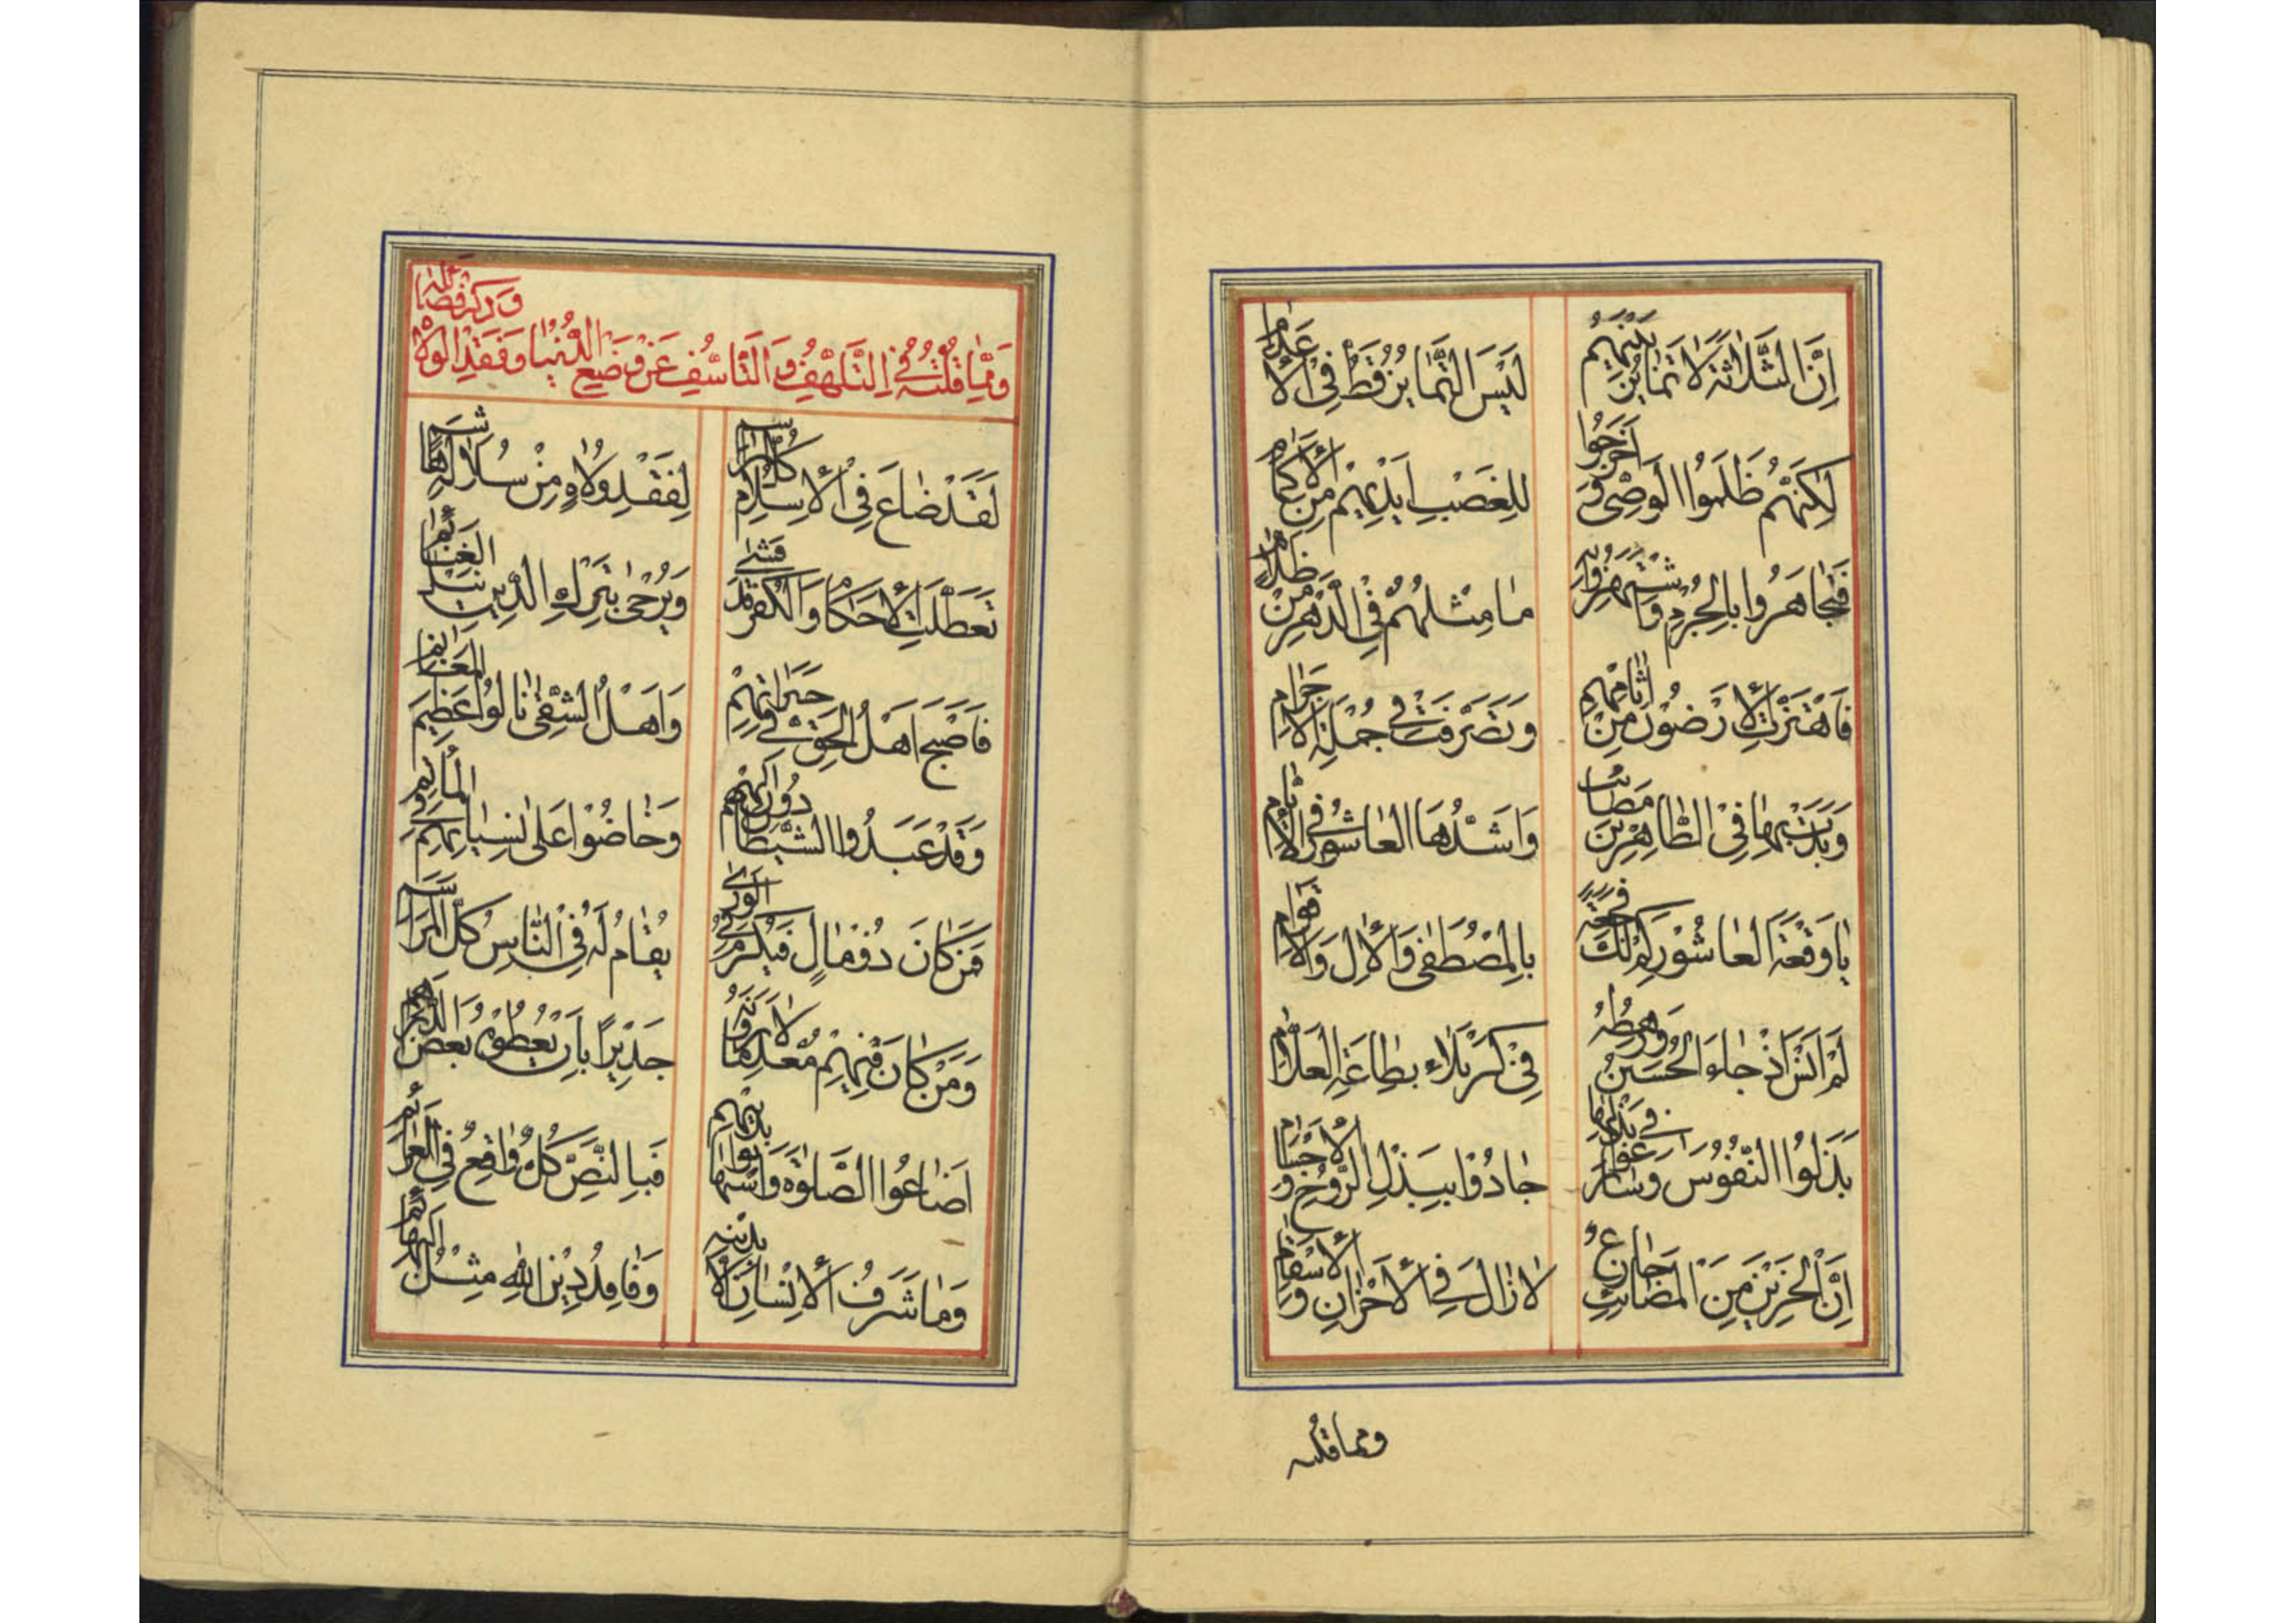 اِنَّ الثَّلاثَةَ لَا تَمَايُزَ بَيْنَهُمْ لَيْسَ التَّمَايُزُ قَطُّ فِي الْاَعْدَامِ
لٰكِنَّهُمْ ظَلَمُوا الْوَصِيَّ وَاَخْرَجُوا لِلْغَصْبِ اَيْدِيهِمْ مِنَ الْاَكْمَامِ
فَتَجَاهَرُوا بِالْجُرْمِ وَ مَا مِثْلُهُمْ فِي الدَّهْرِ مِنْ ظَلَّامِ
فَاهْتَزَّتِ الْاَرَضُونَ مِنْ اٰثَامِهِمْ وَتَصَرَّفَتْ فِي جُمْلَةِ الْاَجْرَامِ
وَبَدَتْ بِهَا فِي الطَّاهِرِينَ مَصَائِبُ وَاَشَدُّهَا الْعَاشُورُ فِي الْاَيَّامِ
يَا وَقْعَةَ الْعَاشُورِ بِالْمُصْطَفٰى وَالْاٰلِ وَالْاَقْوَامِ
لَمْ اَنْسَ اِذْ جَاءَ الْحُسَيْنُ وَرَهْطُهُ فِي كَرْبَلَاءَ بِطَاعَةِ الْعَلَّامِ
بَذَلُوا النُّفُوسَ وَسَارَعُوا فِي بَذْلِهَا جَادُوا بِبَذْلِ الرُّوحِ وَالْاَجْسَامِ
اِنَّ الْحَزِينَ مِنَ الْمَصَائِبِ جَازِعٌ لَا زَالَ فِي الْاَحْزَانِ وَالْاَسْقَامِ
ومما قلته
وَمِمَّا قُلْتُهُ فِي التَّلَهُّفِ وَالتَّاَسُّفِ عَنْ وَضْعِ الدُّنْيَا وَفَقْدِ الْوُلَاةِ
لَقَدْ ضَاعَ فِي الْاِسْلَامِ كُلُّ لِفَقْدِ وُلَاةٍ مِنْ سُلَالَةِ هَاشِمِ
تَعَطَّلَتِ الْاَحْكَامُ وَالْكُفْرُ قَدْ فَشٰى وَيُرْجٰى بِتَرْكِ الدِّينِ نَيْلُ الْغَنَائِمِ
فَاَصْبَحَ اَهْلُ الْحَقِّ فِي وَاَهْلُ الشَّقٰى نَالُوا عَظِيمَ الْمَغَانِمِ
وَقَدْ عَبَدُوا الشَّيْطَانَ دُونَ اِلٰهِهِمْ وَخَاضُوا عَلٰى
فَمَنْ كَانَ ذُو مَالٍ فَيُكْرِمُهُ الْوَرٰى يُقَامُ لَهُ فِي النَّاسِ كُلُّ الْمَرَاسِمِ
وَمَنْ كَانَ فِيهِمْ مُعْدِمًا لَا يَرَوْنَهُ جَدِيرًا بِاَنْ يُعْطُوهُ بَعْضَ الدَّرَاهِمِ
اَضَاعُوا الصَّلٰوةَ وَاسْتَهَانُوا بِدِينِهِمْ فَبِالنَّصِّ كُلٌّ وَاقِعٌ فِي
وَمَا شَرَفُ الْاِنْسَانِ اِلَّا بِدِينِهِ وَفَاقِدُ دِينِ اللهِ مِثْلُ الْبَهَائِمِ